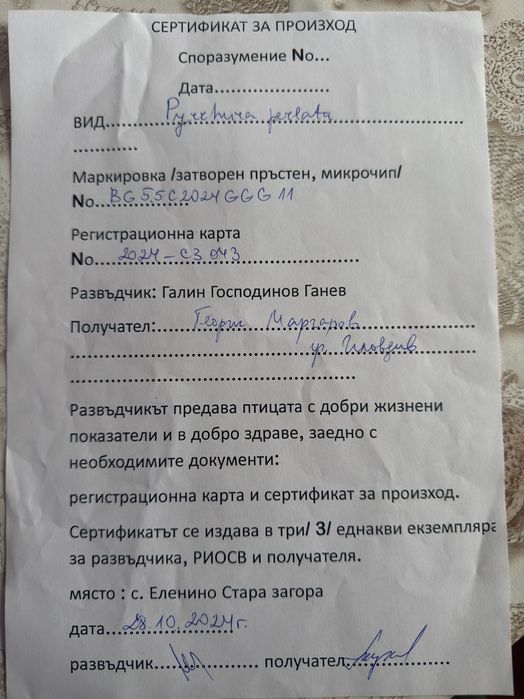 СЕРТИФИКАТ ЗА ПРОИЗХОД
Споразумение №...
Дата.....................
ВИД.... Pyrrhura perlata ....
............
Маркировка /затворен пръстен, микрочип/
No. BG55C2024GGG11
Регистрационна карта
No.... 2024-С3 043 ....
Развъдчик: Галин Господинов Ганев
Получател:.... Георги Маргаров ....
.... гр. Пловдив ....
....................................
Развъдчикът предава птицата с добри жизнени
показатели и в добро здраве, заедно с
необходимите документи:
регистрационна карта и сертификат за произход.
Сертификатът се издава в три/ 3/ еднакви екземпляра
за развъдчика, РИОСВ и получателя.
място : с. Еленино Стара загора
дата.. 28.10.2024г.
развъдчик.................. получател..................